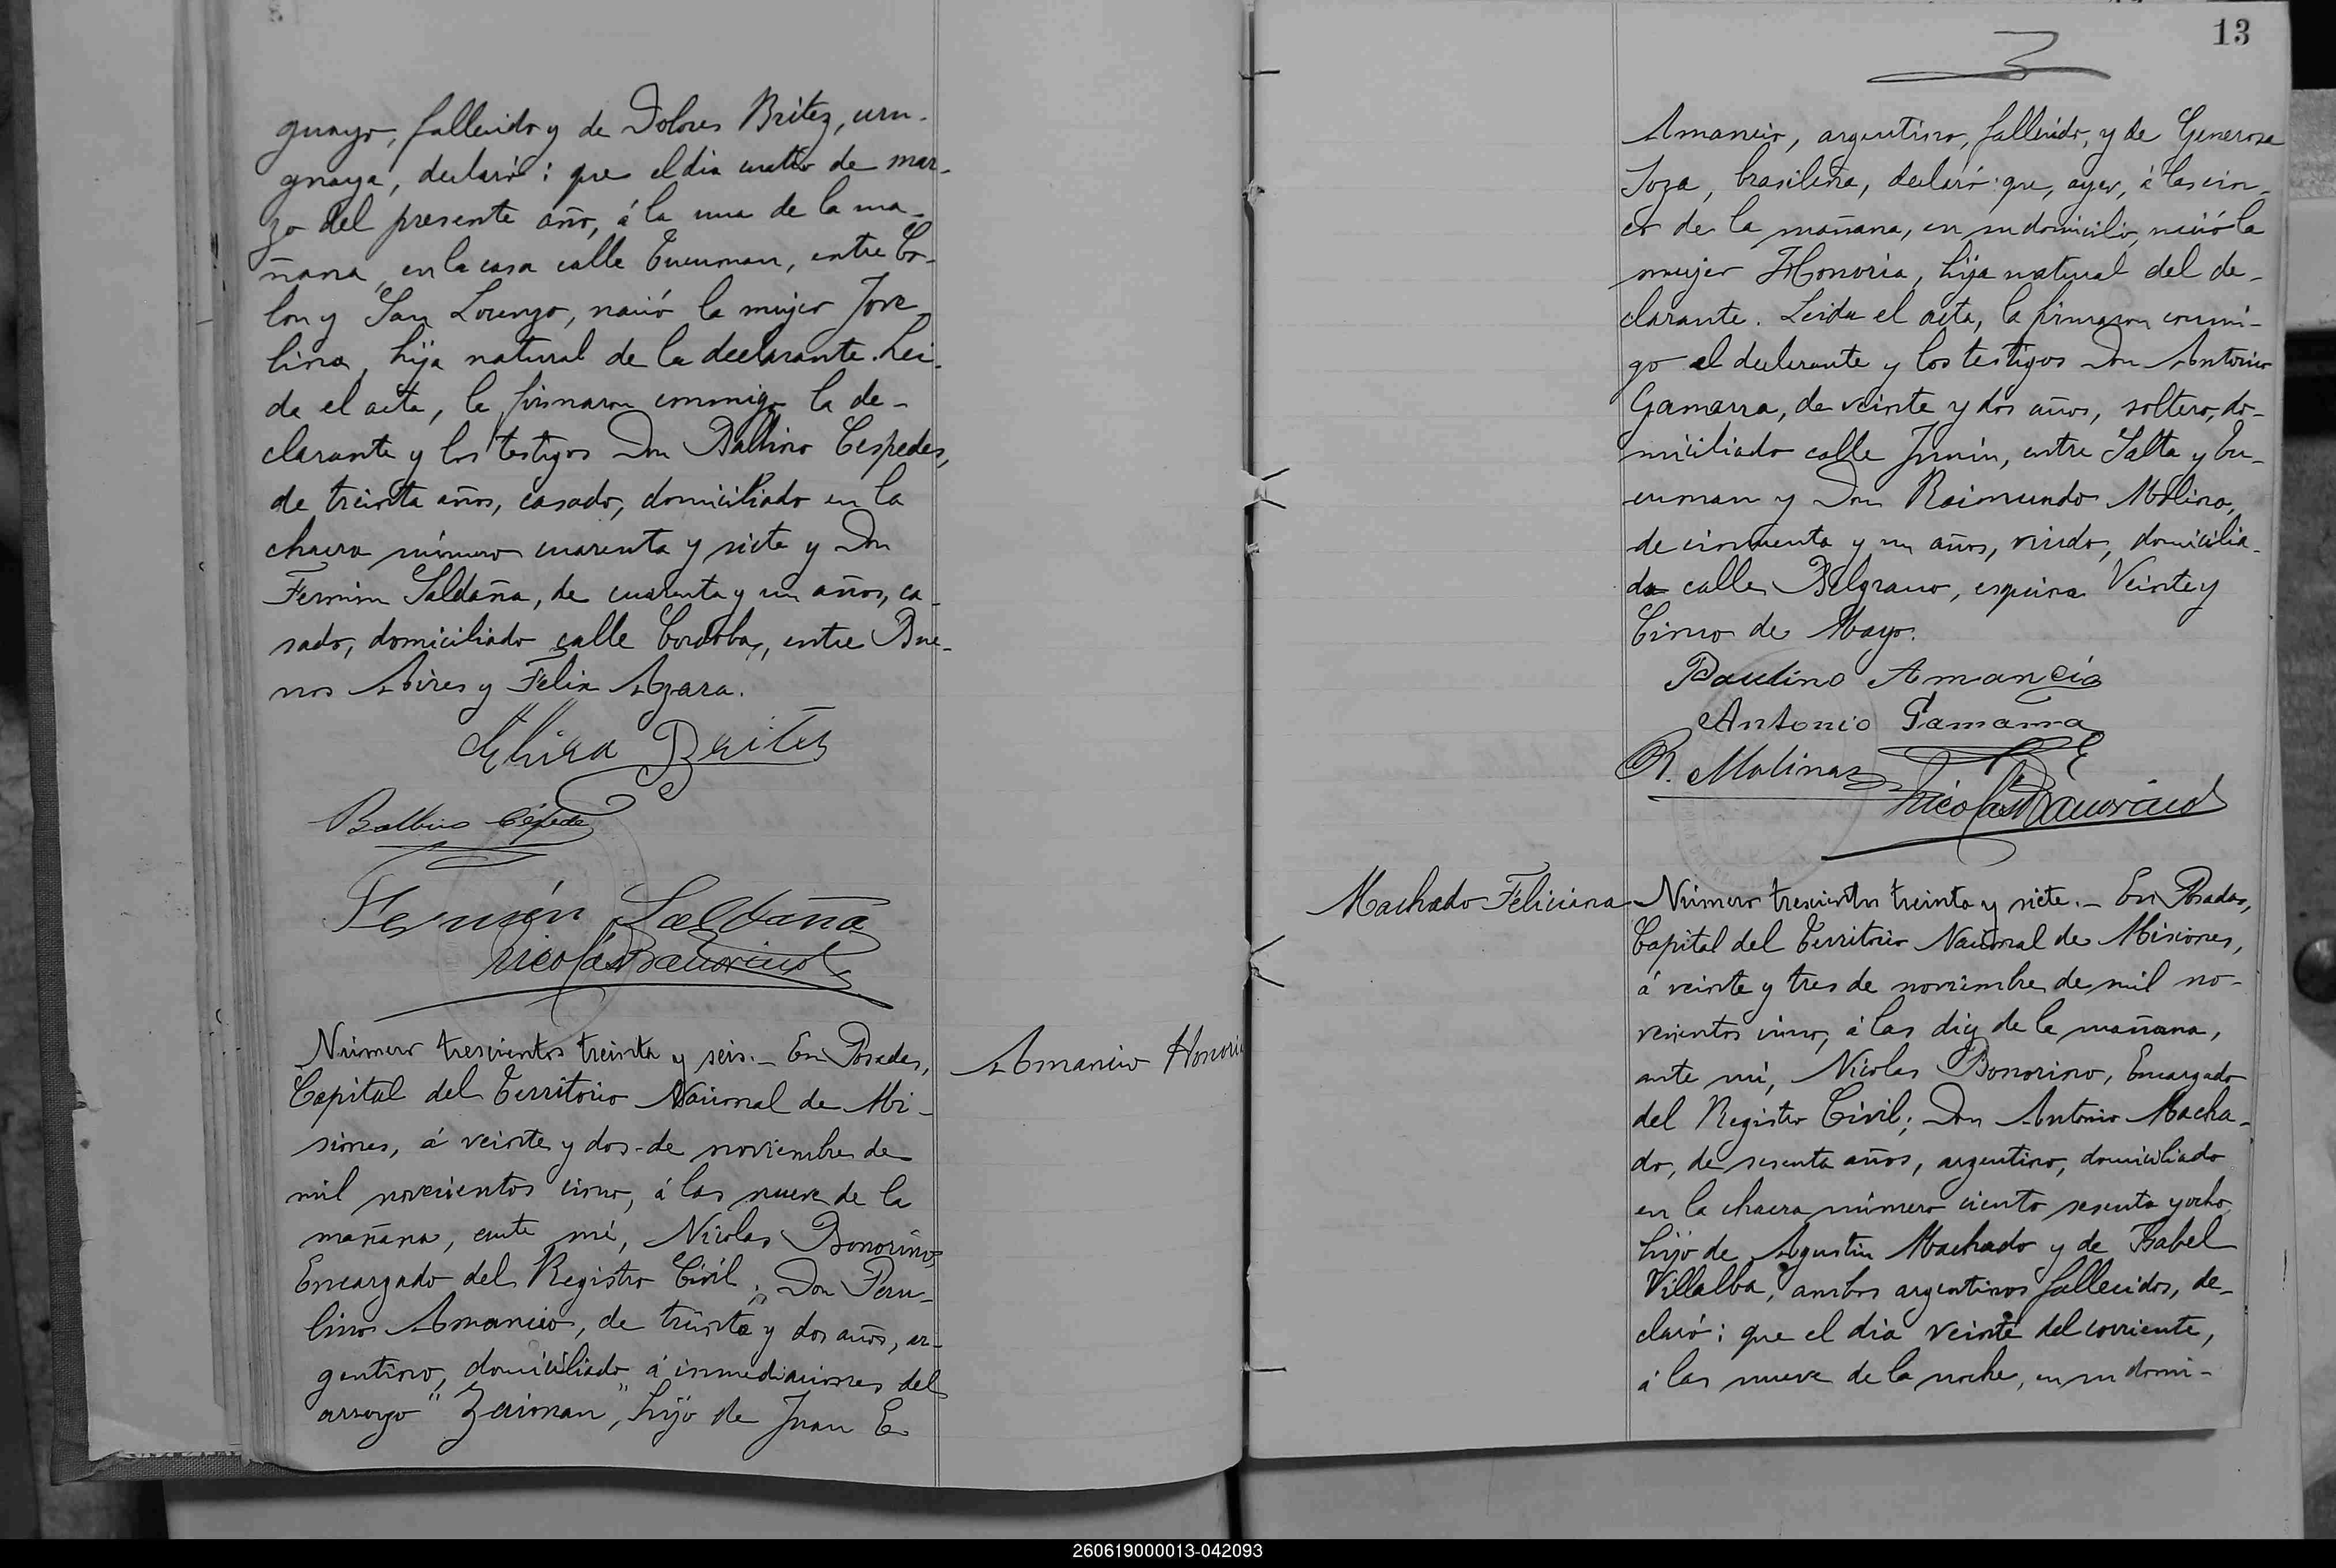 guayo, fallecido y de Dolores Britez, uru-
guaya, declaró: que el dia cuatro de mar-
zo del presente año, á la una de la ma-
ñana, en la casa calle Tucuman, entre Co-
lon y San Lorenzo, nació la mujer Jove-
lina, hija natural de la declarante. Lei-
da el acta, la firmaron conmigo la de-
clarante y los testigos Don Balbino Cespedes,
de treinta años, casado, domiciliado en la
chacra número cuarenta y siete y Don
Fermin Saldaña, de cuarenta y un años, ca-
sado, domiciliado calle Cordoba, entre Bue-
nos Aires y Felix Azara.
Elvira Britez
Balbino Céspede
Fermín Saldaña
Nicolás Bonorino
Número trescientos treinta y seis.- En Posadas,
Capital del Territorio Nacional de Mi-
siones, á veinte y dos de noviembre de
mil novecientos cinco, á las nueve de la
mañana, ante mí, Nicolas Bonorino,
Encargado del Registro Civil; Don Pau-
lino Amancio, de treinta y dos años, ar-
gentino, domiciliado á inmediaciones del
arroyo "Zaiman", hijo de Juan E.
Amancio Honoria
13
Amancio, argentino, fallecido, y de Generosa
Soza, brasileña, declaró: que, ayer, á las cin-
co de la mañana, en su domicilio, nació la
mujer Honoria, hija natural del de-
clarante. Leida el acta, la firmaron conmi-
go el declarante y los testigos Don Antonio
Gamarra, de veinte y dos años, soltero, do-
miciliado calle Junin, entre Salta y Tu-
cuman y Don Raimundo Molina,
de cincuenta y un años, viudo, domicilia-
do calle Belgrano, esquina Veinte y
Cinco de Mayo.
Paulino Amancio
Antonio Gamarra
R. Molinas
Nicolás Bonorino
Machado Feliciana
Número trescientos treinta y siete.- En Posadas,
Capital del Territorio Nacional de Misiones,
á veinte y tres de noviembre de mil no-
vecientos cinco, á las diez de la mañana,
ante mí, Nicolas Bonorino, Encargado
del Registro Civil; Don Antonio Macha-
do, de sesenta años, argentino, domiciliado
en la chacra número ciento sesenta y ocho,
hijo de Agustin Machado y de Isabel
Villalba, ambos argentinos fallecidos, de-
claró: que el dia veinte del corriente,
á las nueve de la noche, en su domi-
260619000013-042093